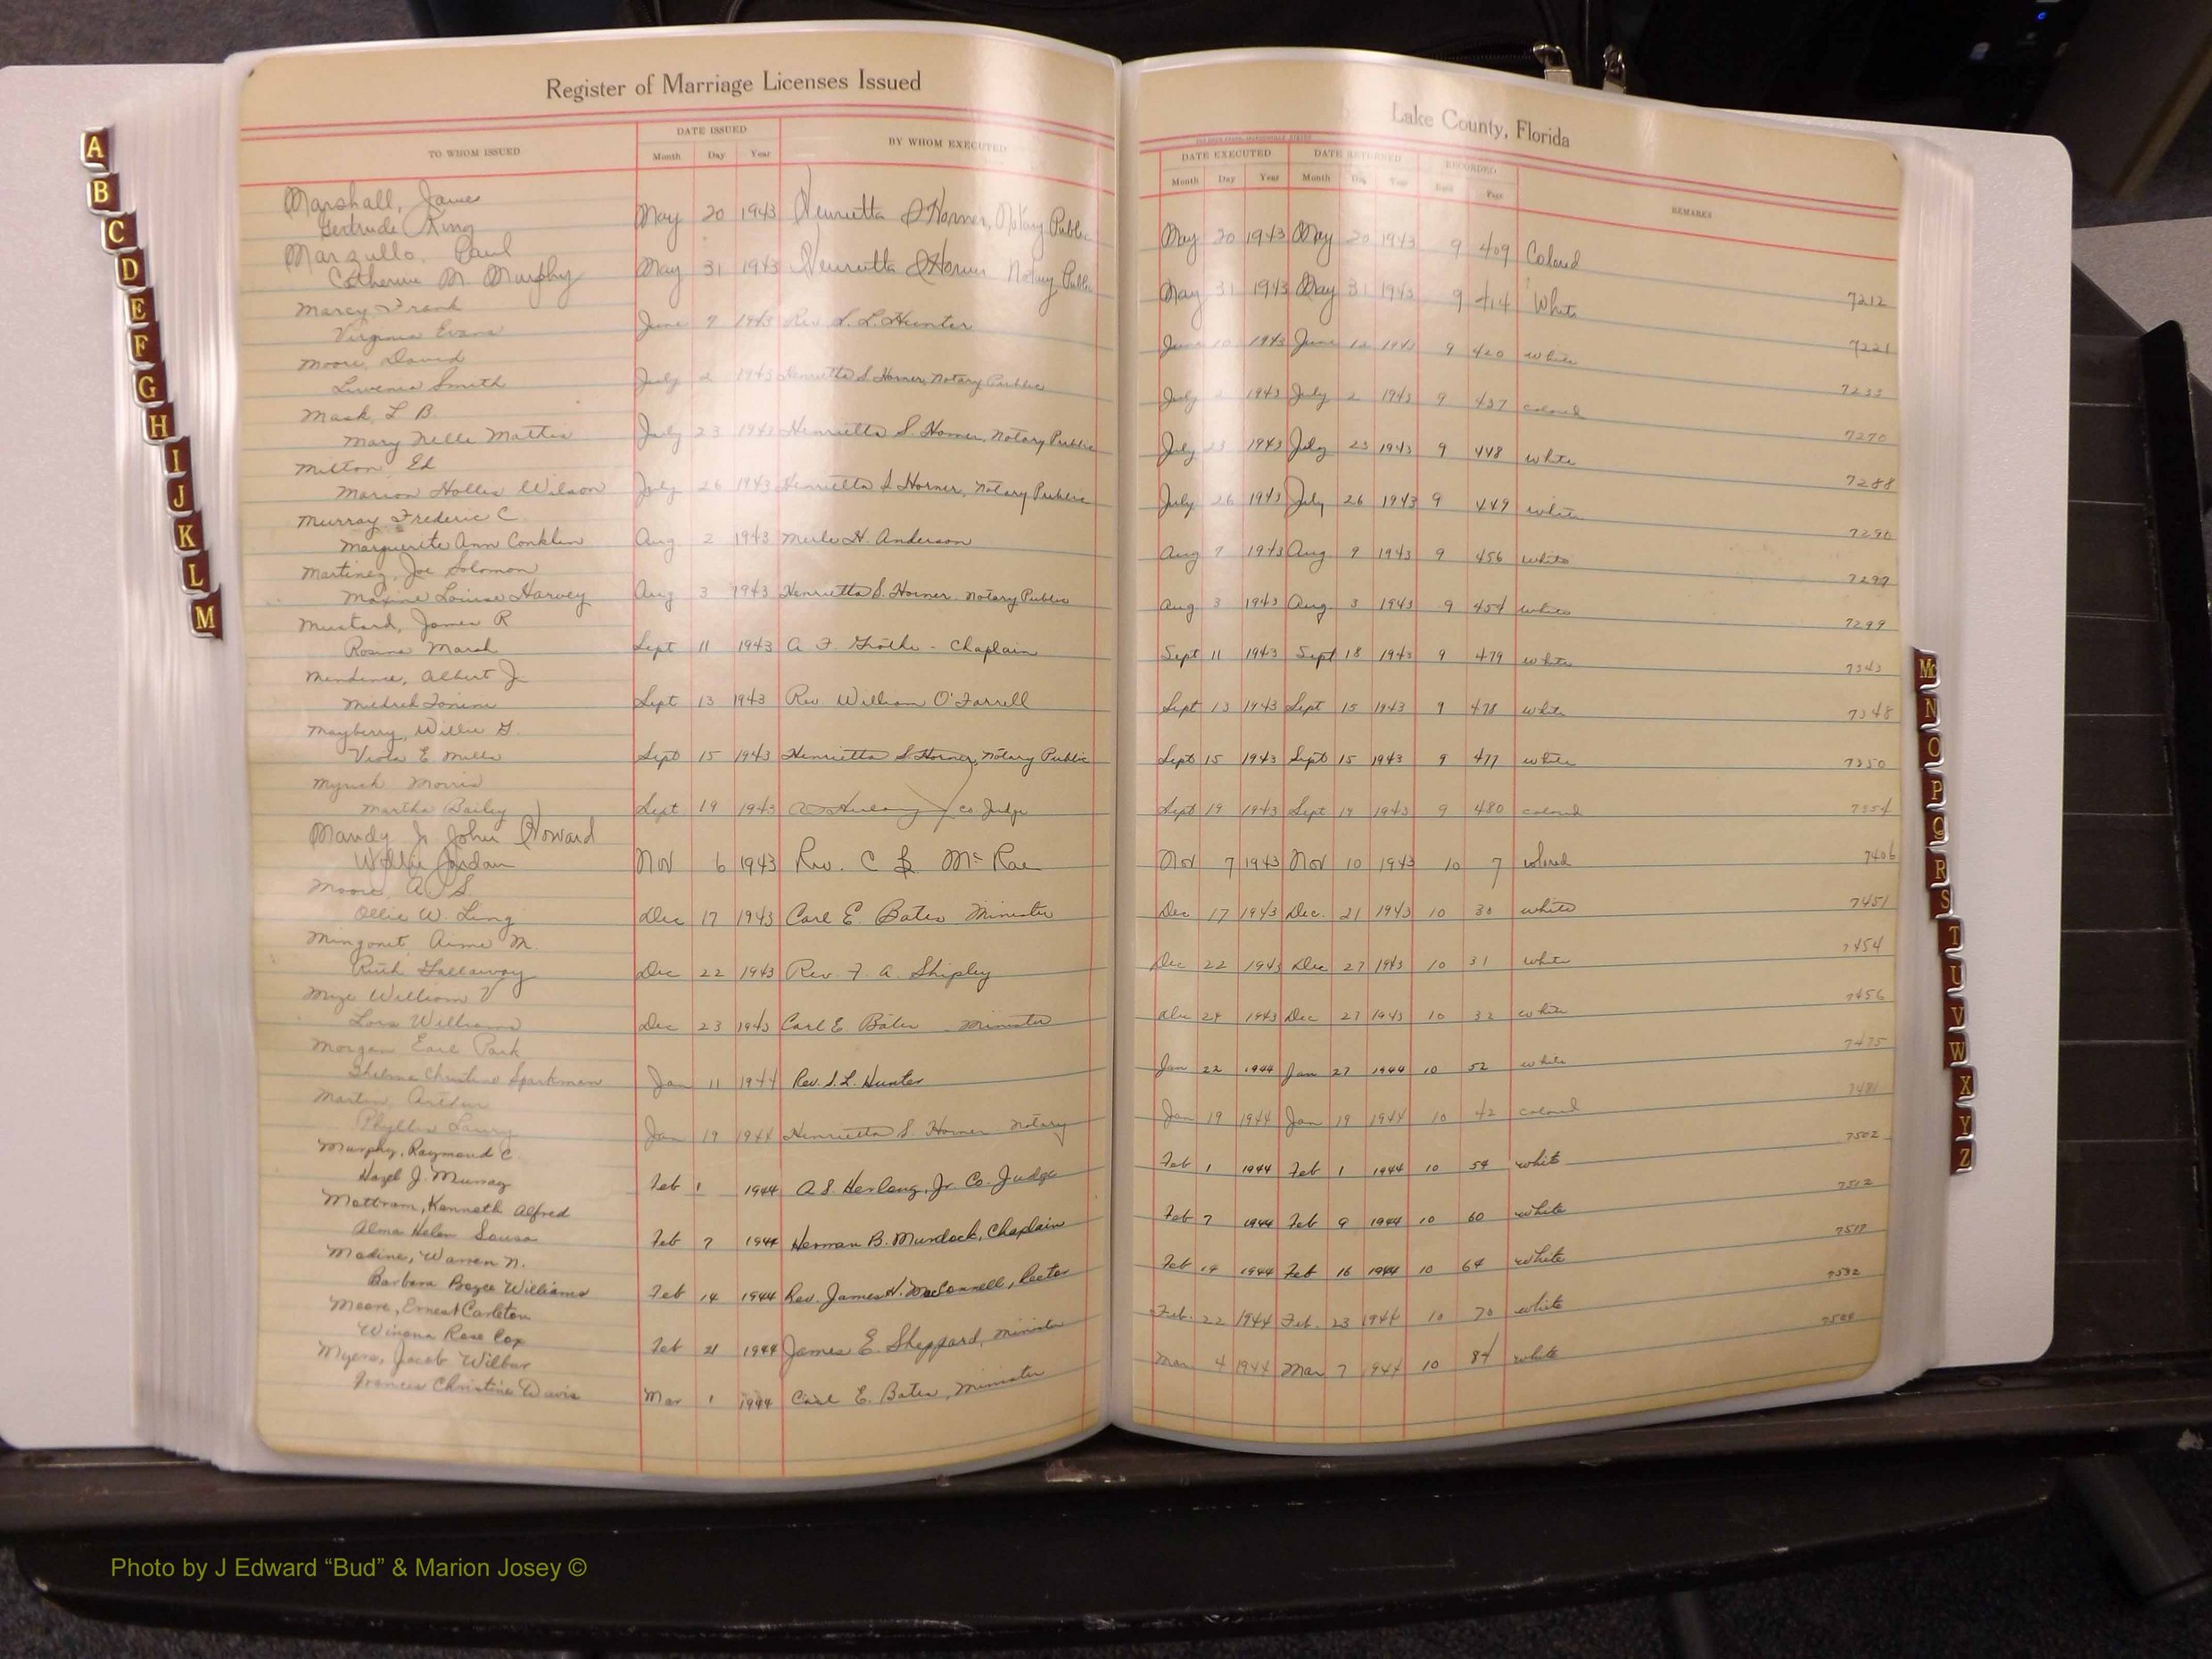 Register of Marriage Licenses Issued
Lake County, Florida
TO WHOM ISSUED
DATE ISSUED
Month Day Year
BY WHOM EXECUTED
DATE EXECUTED DATE RETURNED RECORDED
Month Day Year Month Day Year Book Page
REMARKS
Marshall, James
Gertrude King May 20 1943 Henrietta S Horner, Notary Public May 20 1943 May 20 1943 9 409 Colored
7212
Marzullo, Paul
Catherine M Murphy May 31 1943 Henrietta S Horner Notary Public May 31 1943 May 31 1943 9 414 White
7221
Marcy Frank
Virginia Evans June 7 1943 Rev. S. L. Hunter June 10 1943 June 12 1943 9 420 white
7233
Moore, David
Luvenia Smith July 2 1943 Henrietta S Horner, Notary Public July 2 1943 July 2 1943 9 437 colored
7270
Mask, L B.
Mary Nelle Mattis July 23 1943 Henrietta S. Horner, Notary Public July 23 1943 July 23 1943 9 448 white
7288
Milton Ed
Marion Hollis Wilson July 26 1943 Henrietta S Horner, Notary Public July 26 1943 July 26 1943 9 449 white
7290
Murray Frederic C
Marguerite Ann Conklin Aug 2 1943 Merle H. Anderson Aug 7 1943 Aug 9 1943 9 456 white
7297
Martinez, Joe Solomon
Maxine Louise Harvey Aug 3 1943 Henrietta S. Horner. Notary Public Aug 3 1943 Aug 3 1943 9 454 white
7299
Mustard, James R
Rosina Marsh Sept 11 1943 A F. - Chaplain Sept 11 1943 Sept 18 1943 9 479 white
7343
Albert Jr
Mildred Sept 13 1943 Rev William O'Farrell Sept 13 1943 Sept 15 1943 9 478 white
7348
Mayberry, Willie G.
Viola E. Mills Sept 15 1943 Henrietta S. Horner, Notary Public Sept 15 1943 Sept 15 1943 9 477 white
7350
Myrick Morris
Martha Bailey Sept 19 1943 Co. Judge Sept 19 1943 Sept 19 1943 9 480 colored
7354
Mandy Jr John Howard
Willie Jordan Nov 6 1943 Rev. C L McRae Nov 7 1943 Nov 10 1943 10 7 colored
7406
Moore, A. S.
Ollie W. Ling Dec 17 1943 Carl E. Bates Minister Dec 17 1943 Dec. 21 1943 10 30 white
7451
Mingonet, Aime M.
Ruth Gallaway Dec 22 1943 Rev. F. A. Shipley Dec 22 1943 Dec 27 1943 10 31 white
7454
Mize William V
Lora Williams Dec 23 1943 Carl E Bates Minister Dec 24 1943 Dec 27 1943 10 32 white
7456
Morgan Earl Park
Thelma Christine Sparkman Jan 11 1944 Rev. S. L. Hunter Jan 22 1944 Jan 27 1944 10 52 white
7475
Martin, Arthur
Phyllis Jan 19 1944 Henrietta S. Horner Notary Jan 19 1944 Jan 19 1944 10 42 colored
7481
Murphy, Raymond C.
Hazel J. Murray Feb 1 1944 A. S. Herlong, Jr. Co. Judge Feb 1 1944 Feb 1 1944 10 54 white
7502
Mottram, Kenneth Alfred
Alma Helen Sousa Feb 7 1944 Herman B. Murdock, Chaplain Feb 7 1944 Feb 9 1944 10 60 white
7512
Madine, Warren N.
Barbara Boyce Williams Feb 14 1944 Rev. James H. MacConnell, Rector Feb 14 1944 Feb 16 1944 10 64 white
Moore, Ernest Carleton
Winona Rose Cox Feb 21 1944 James E. Sheppard, Minister Feb. 22 1944 Feb. 23 1944 10 70 white
7532
Myers, Jacob Wilbur
Frances Christine Davis Mar 1 1944 Carl E. Bates, Minister Mar 4 1944 Mar 7 1944 10 84 white
A
B
C
D
E
F
G
H
I
J
K
L
M
Mc
N
O
P
Q
R
S
T
U
V
W
X
Y
Z
Photo by J Edward “Bud” & Marion Josey ©